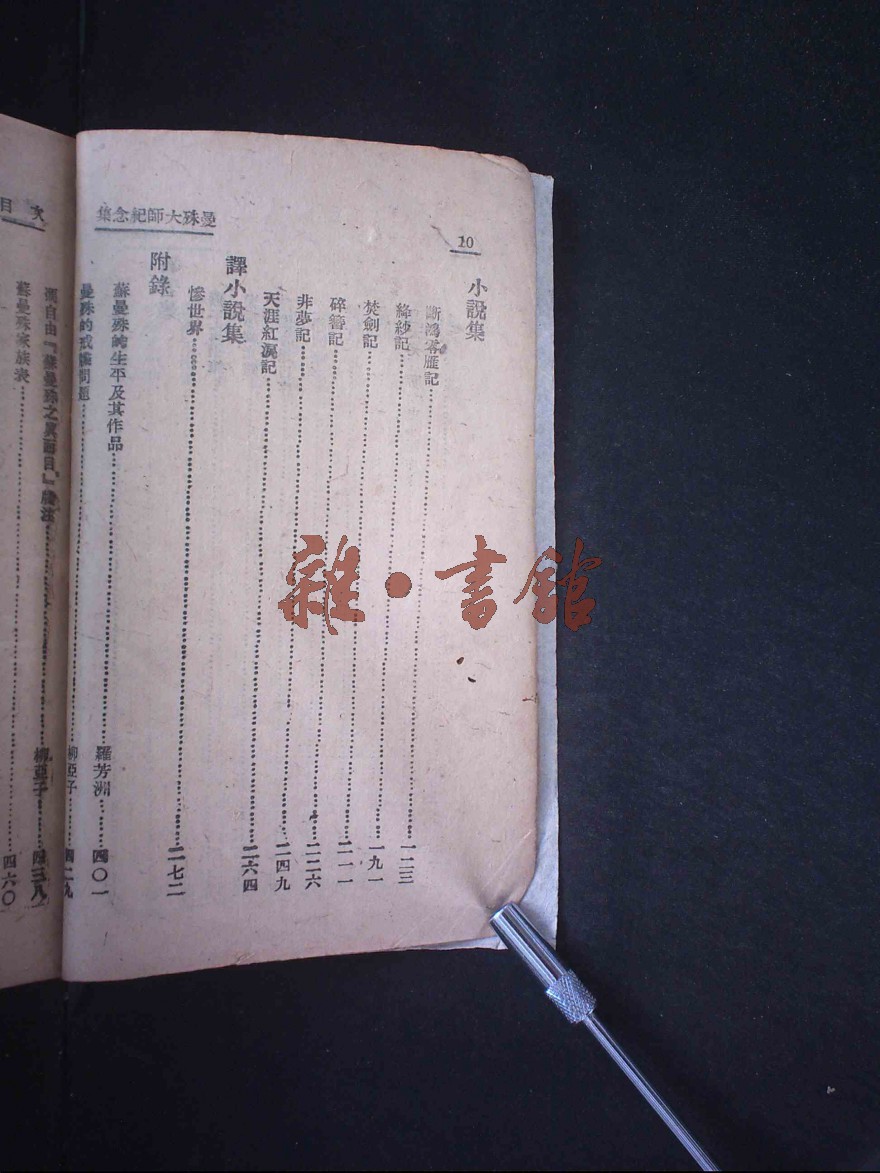 曼殊大師紀念集
10
小說集
斷鴻零雁記……一二三
絳紗記
焚劍記……一九一
碎簪記……二一一
非夢記……二二六
天涯紅淚記……二四九
二六四
譯小說集
慘世界……二七二
附錄
蘇曼殊的生平及其作品……羅芳洲……四〇一
曼殊的戒牒問題……柳亞子……四二九
目次
柳亞子……四三八
蘇曼殊家族表……四六〇
雜·書館